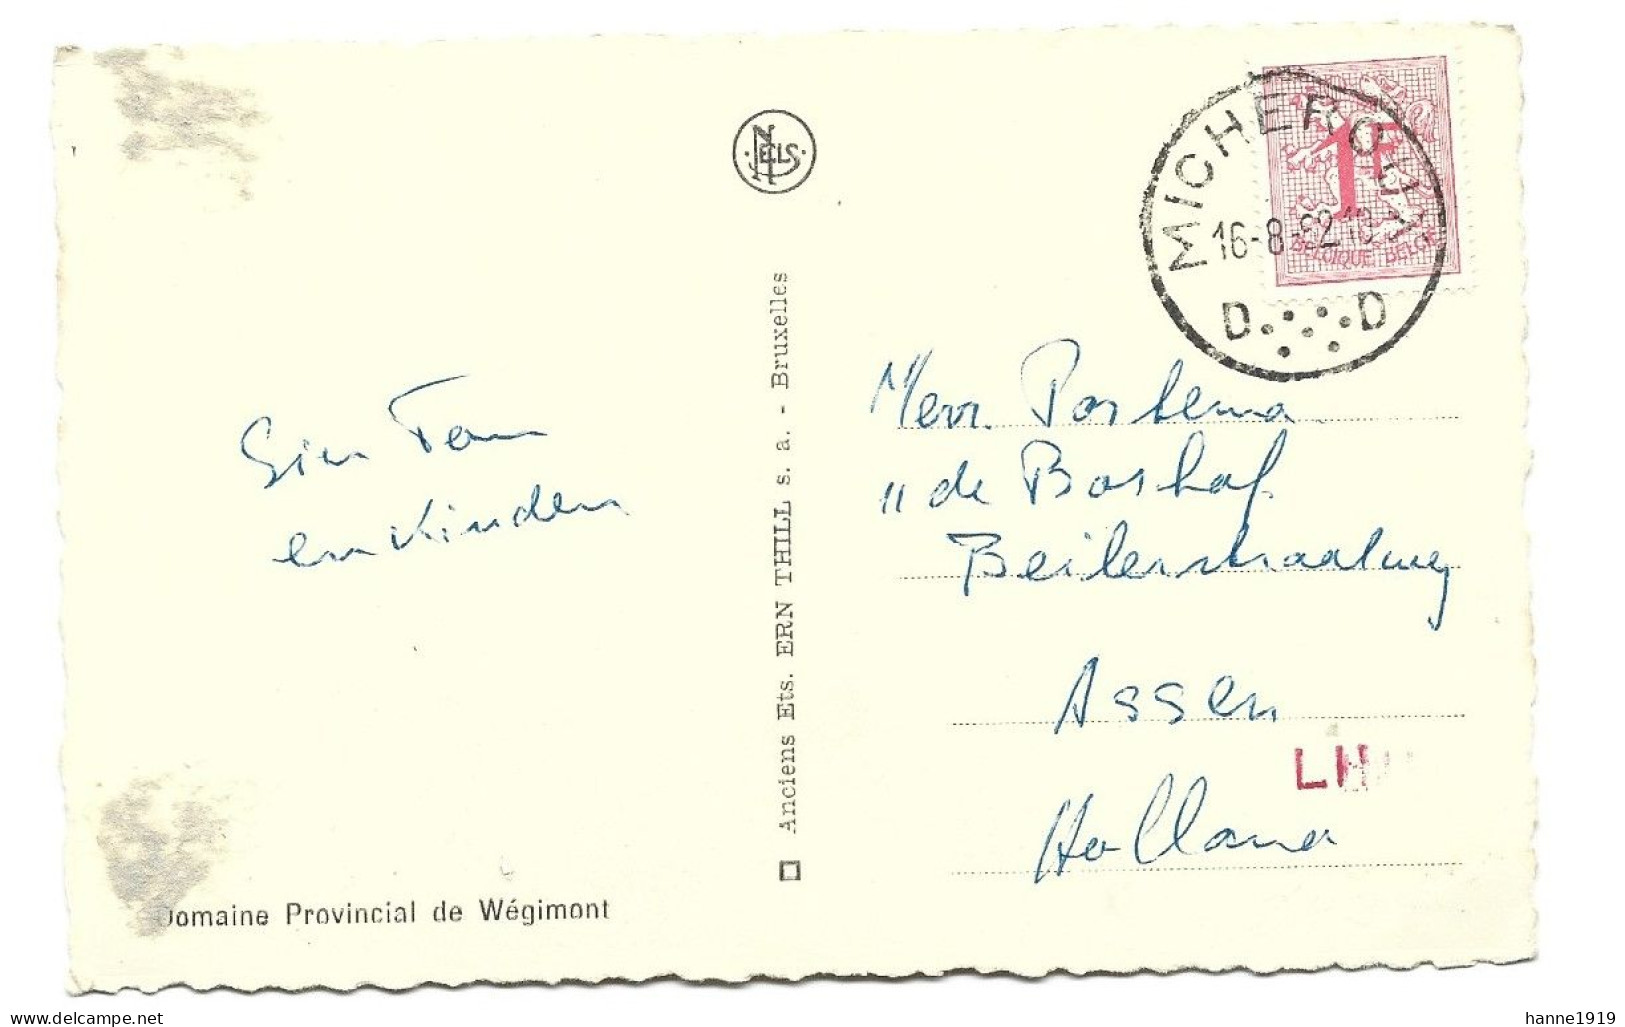 NELS
MICHEROUX
16-8-62 18
D D
1F
BELGIQUE BELGIE
Sien Tom
en kinderen
Anciens Ets. ERN THILL s. a. - Bruxelles
Merr. Postema
"de Boshof"
Beilerstraatweg
Assen
LH
Holland
Domaine Provincial de Wégimont
www.delcampe.net
hanne1919